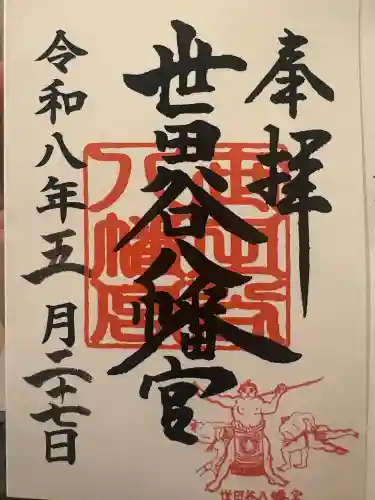 奉拝
世田谷八幡宮
令和八年五月二十七日
世田谷
八幡宮
世田谷八幡宮